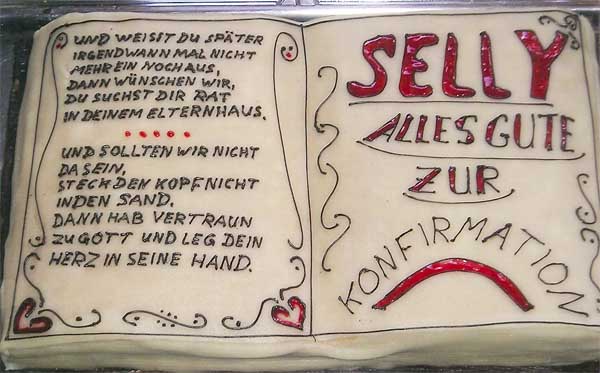 UND WEISST DU SPÄTER
IRGENDWANN MAL NICHT
MEHR EIN NOCH AUS,
DANN WÜNSCHEN WIR,
DU SUCHST DIR RAT
IN DEINEM ELTERNHAUS.
UND SOLLTEN WIR NICHT
DA SEIN,
STECK DEN KOPF NICHT
IN DEN SAND.
DANN HAB VERTRAUN
ZU GOTT UND LEG DEIN
HERZ IN SEINE HAND.
SELLY
ALLES GUTE
ZUR
KONFIRMATION